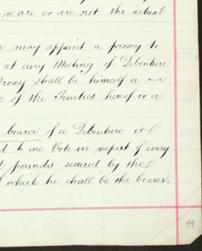 are or are not the actual
may appoint a proxy to
at any Meeting of Debenture
Proxy shall be himself a
of the Trustees hereof or a
bearer of a Debenture
to one Vote in respect of every
pounds secured by the
which he shall be the bearer.